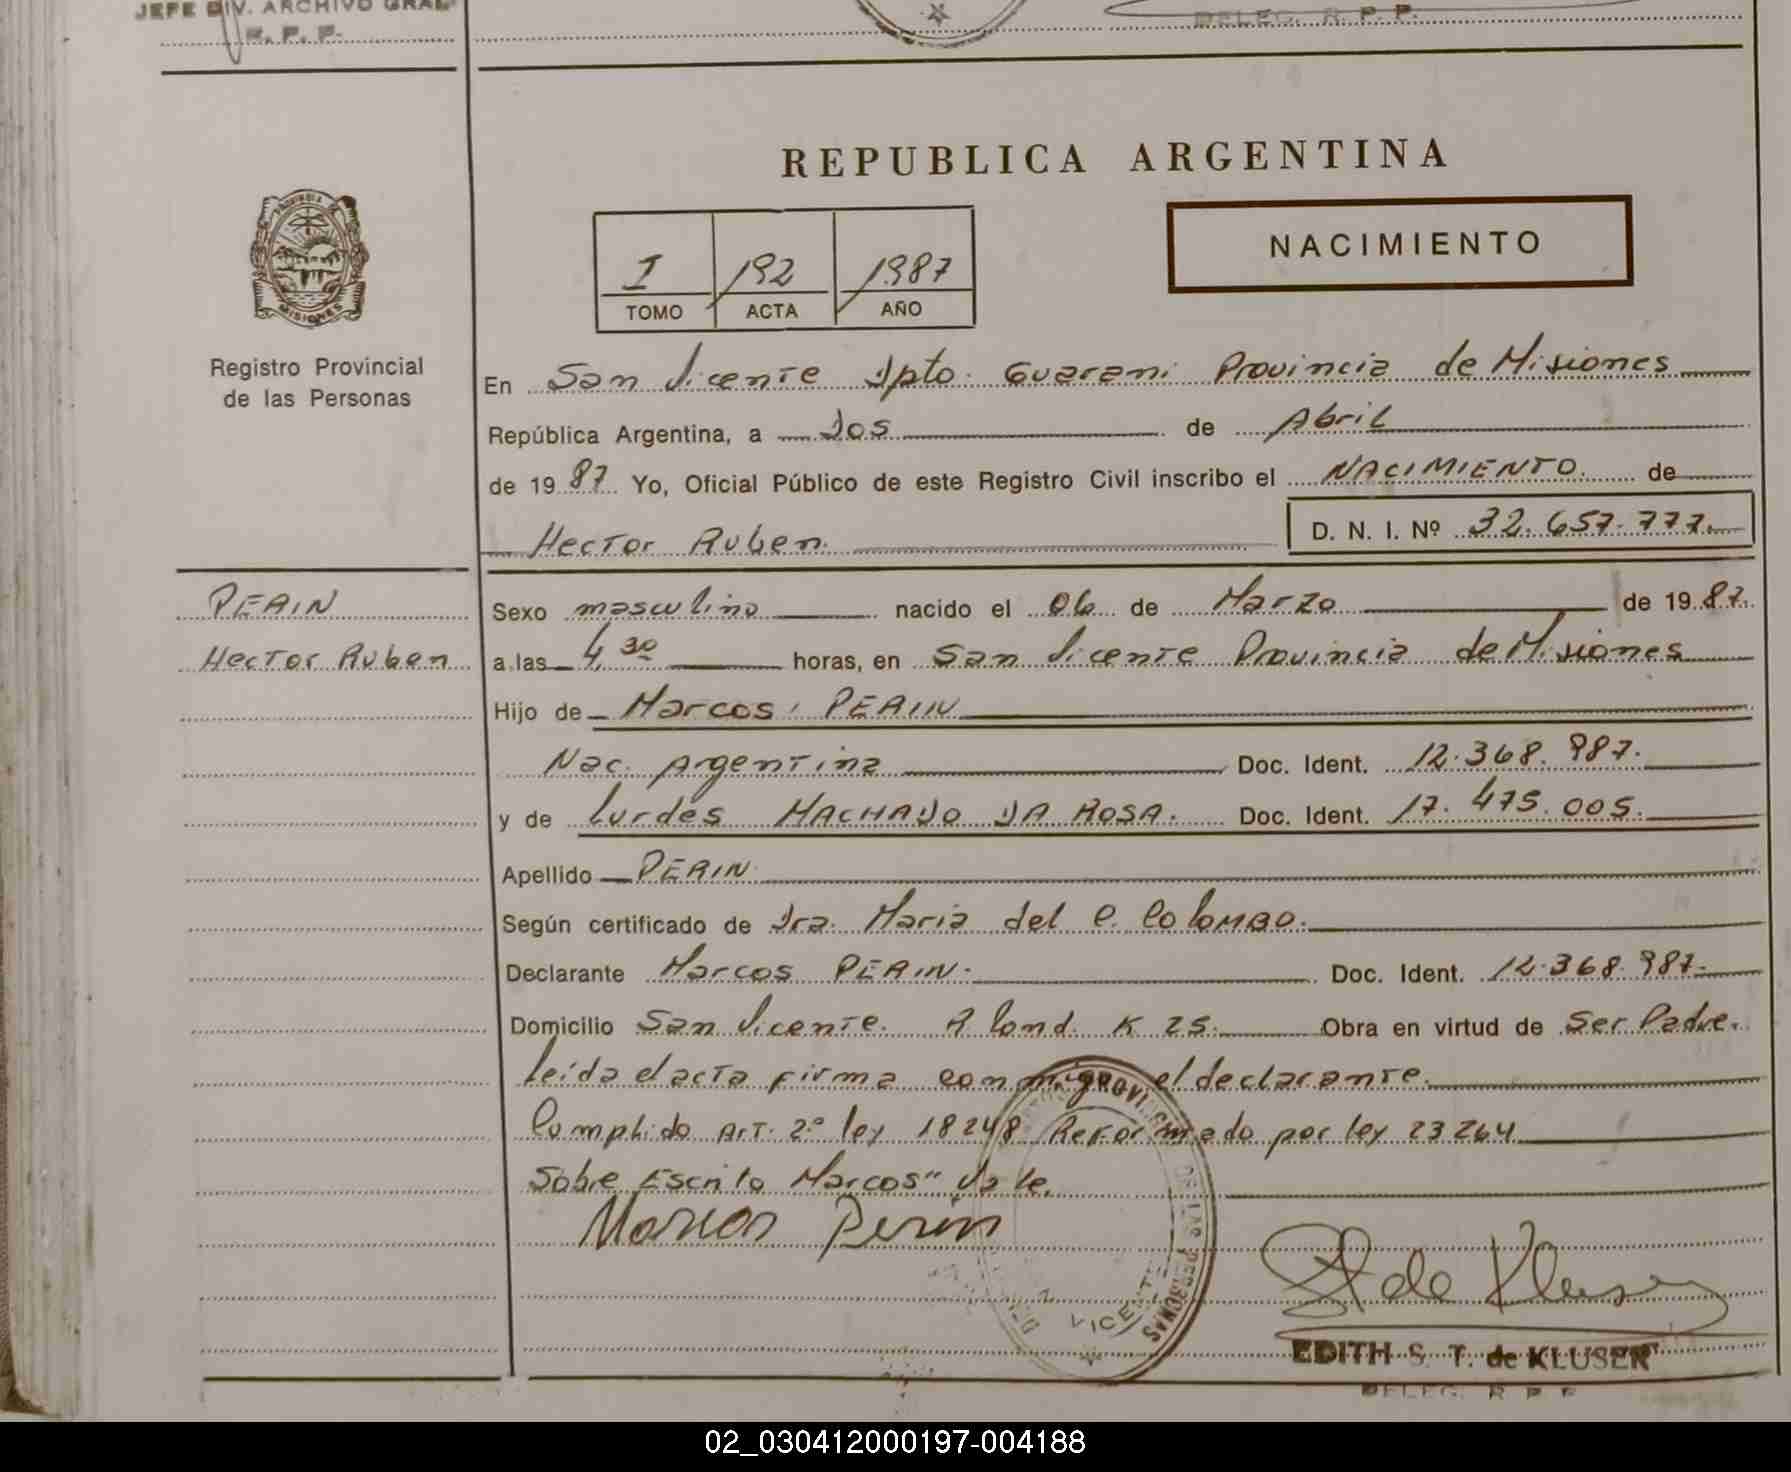 JEFE DIV. ARCHIVO GRAL
R. P. P.
DELEG. R. P. P.
REPUBLICA ARGENTINA
NACIMIENTO
I 192 1987
TOMO ACTA AÑO
PROVINCIA DE
MISIONES
Registro Provincial
de las Personas
En San Vicente Dpto. Guarani Provincia de Misiones
República Argentina, a Dos de Abril
de 19 87 Yo, Oficial Público de este Registro Civil inscribo el NACIMIENTO. de
Hector Ruben. D. N. I. Nº 32.657.777.
PERIN
Hector Ruben
Sexo masculino nacido el 06 de Marzo de 19 87.
a las 4,30 horas, en San Vicente Provincia de Misiones
Hijo de Marcos PERIN
Nac. Argentina Doc. Ident. 12.368.987.
y de Lurdes MACHADO DA ROSA. Doc. Ident. 17.475.005.
Apellido PERIN.
Según certificado de Dra. Maria del C. Colombo.
Declarante Marcos PERIN. Doc. Ident. 12.368.987.
Domicilio San Vicente. R Lond. K 25. Obra en virtud de Ser Padre.
leída el acta firma conmigo el declarante.
Cumplido Art. 2º ley 18248 Reformado por ley 23264
Sobre Escrito Marcos" Vale.
Marcos Perin
PROVINCIAL DE LAS PERSONAS
VICENTE
E T de Kluser
EDITH S. T. de KLUSER
DELEG. R. P. P.
02_030412000197-004188